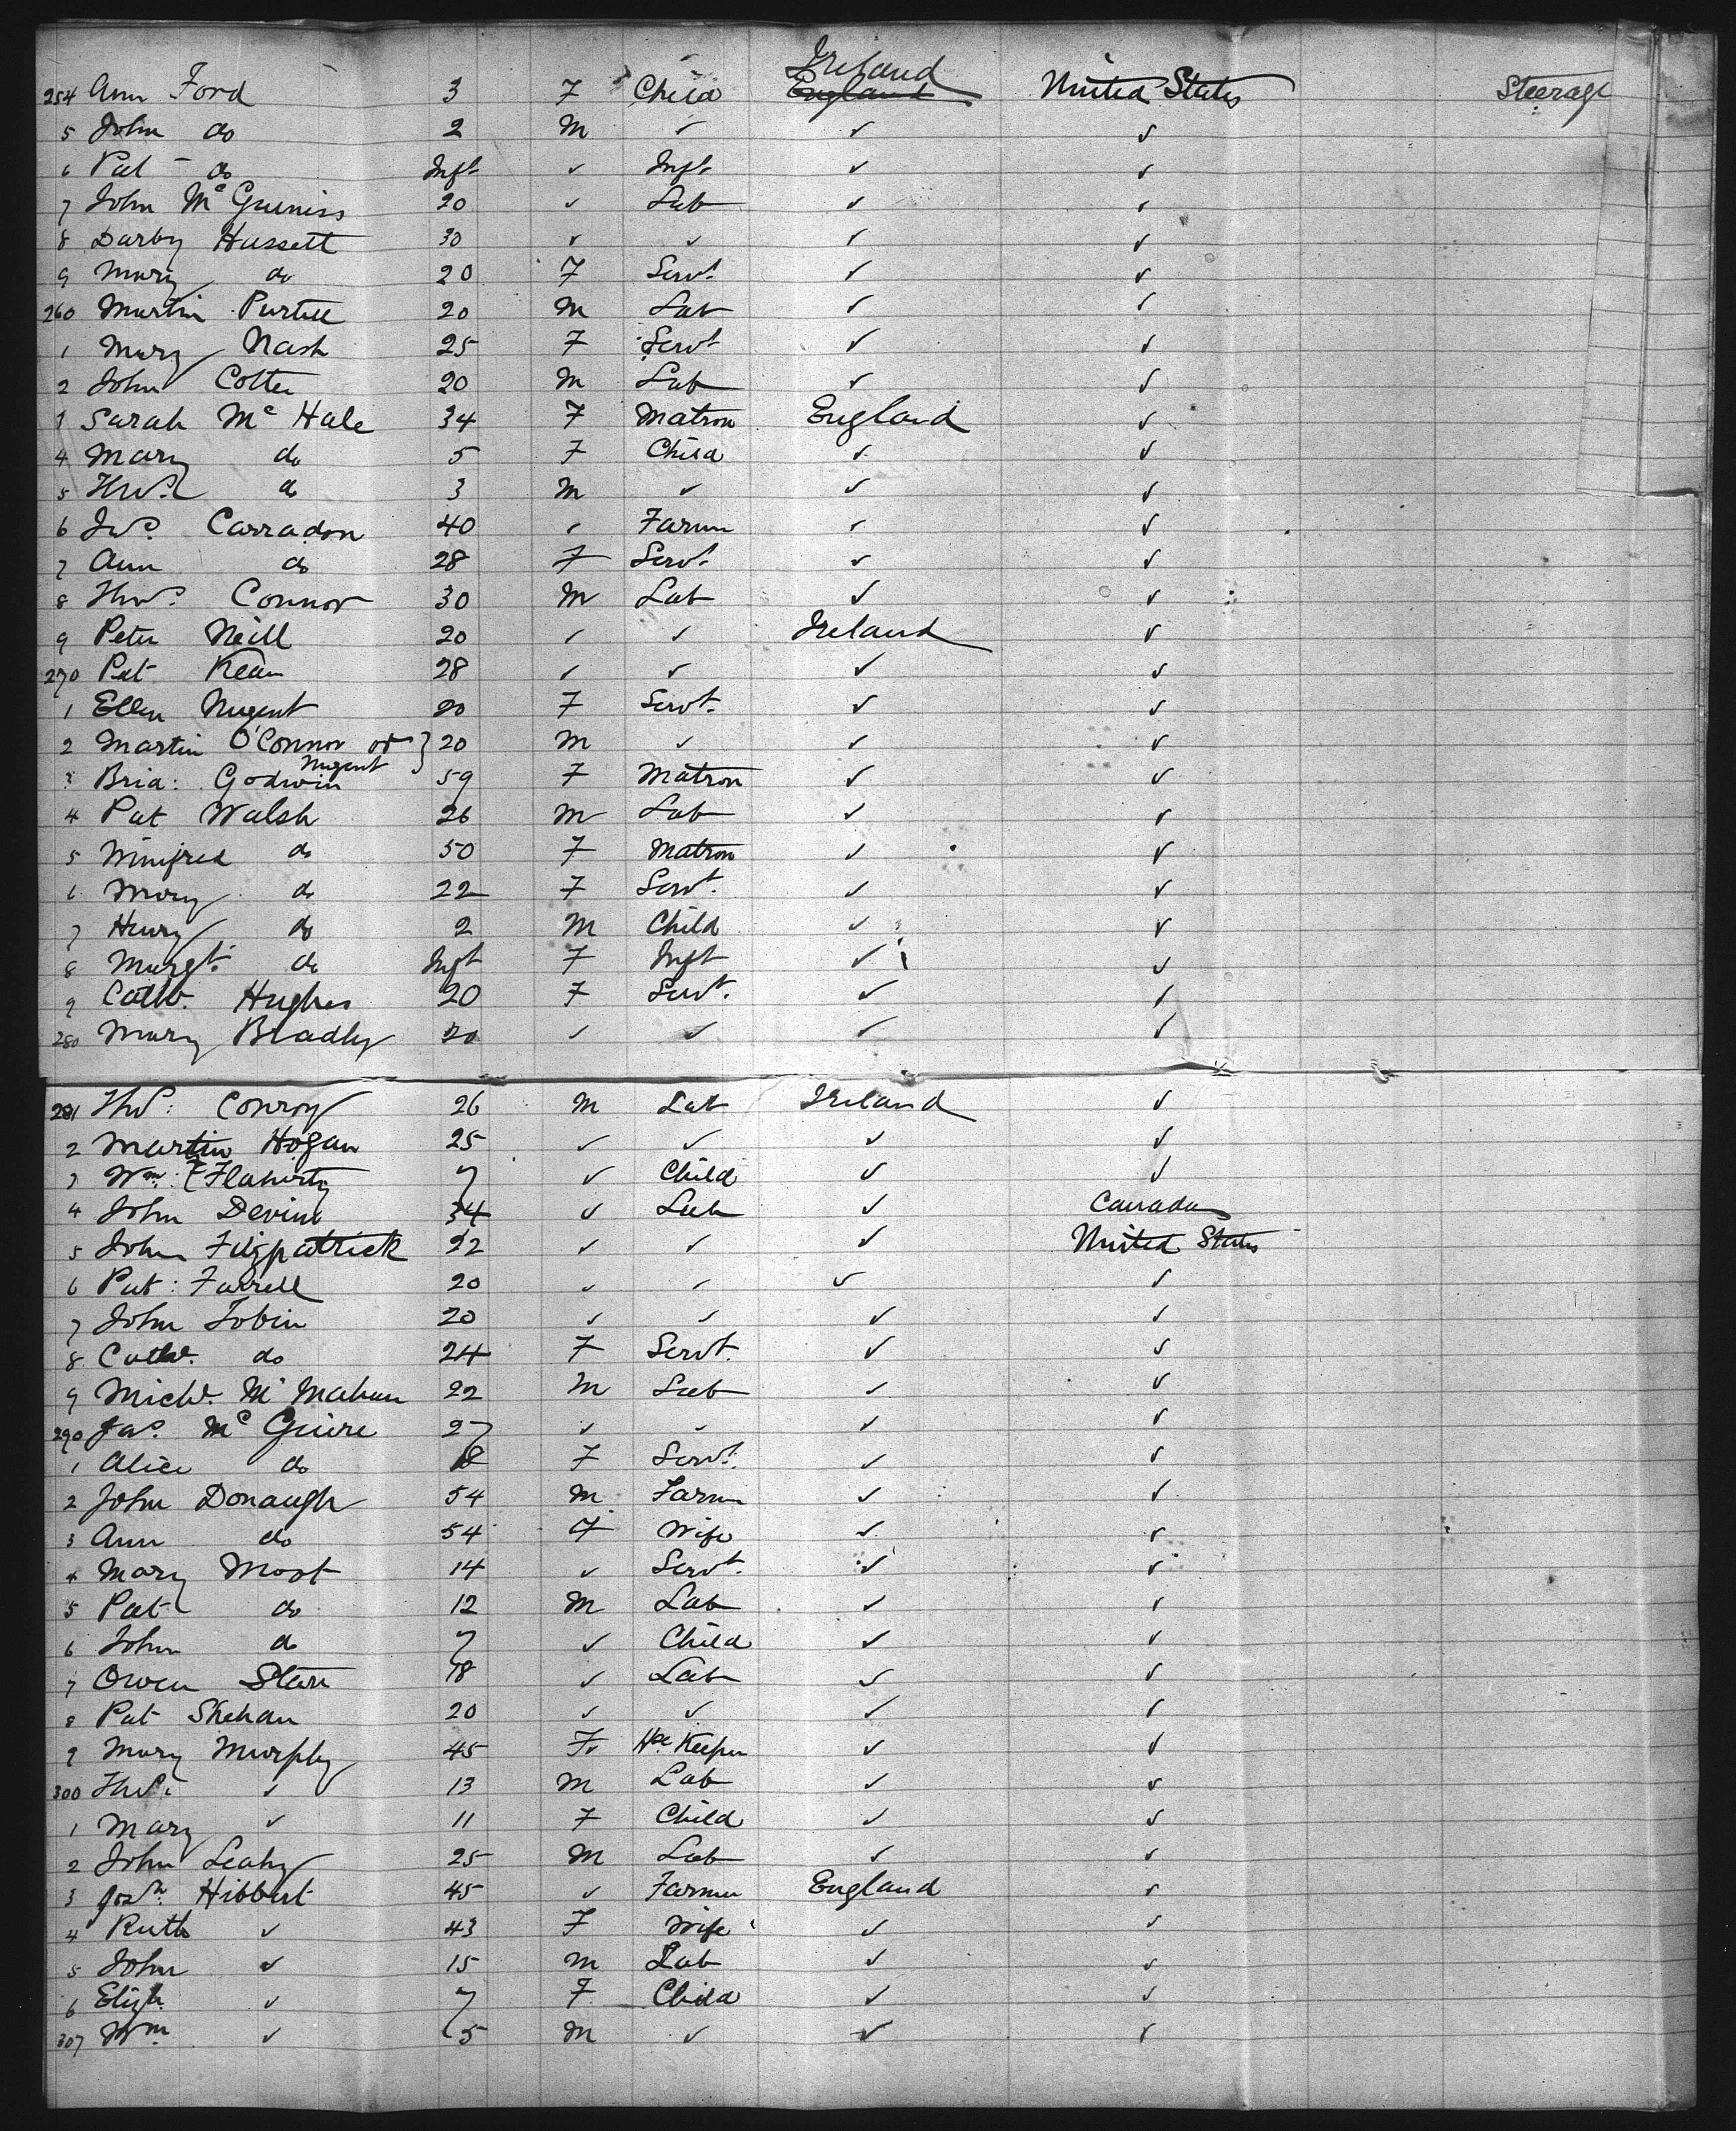 Ireland
254 Ann Ford 3 F Child England United States Steerage
5 John do 2 M ✓ ✓ ✓
6 Pat do Inft ✓ Inft ✓ ✓
7 John McGuiniss 20 ✓ Lab ✓ ✓
8 Darby Hassett 30 ✓ ✓ ✓ ✓
9 Mary do 20 F Servt ✓ ✓
260 Martin Purtill 20 M Lab ✓ ✓
1 Mary Nash 25 F Servt ✓ ✓
2 John Cotter 20 M Lab ✓ ✓
3 Sarah Mc Hale 34 F Matron England ✓
4 Mary do 5 F Child ✓ ✓
5 Thos. do 3 M ✓ ✓ ✓
6 Jno. Carradon 40 ✓ Farmr ✓ ✓
7 Ann do 28 F Servt. ✓ ✓
8 Thos. Connor 30 M Lab ✓ ✓
9 Peter Neill 20 ✓ ✓ Ireland ✓
270 Pat Kean 28 ✓ ✓ ✓ ✓
1 Ellen Nugent 20 F Servt. ✓ ✓
2 Martin O'Connor or } 20 M ✓ ✓ ✓
Nugent
3 Brid: Godwin 59 F Matron ✓ ✓
4 Pat Walsh 26 M Lab ✓ ✓
5 Winifred do 50 F Matron ✓ ✓
6 Mary do 22 F Servt. ✓ ✓
7 Henry do 2 M Child ✓ ✓
8 Margt. do Inft F Inft ✓ ✓
9 Cathe. Hughes 20 F Servt. ✓ ✓
280 Mary Bradly 20 ✓ ✓ ✓ ✓
281 Thos: Conroy 26 M Lab Ireland ✓
2 Martin Hogan 25 ✓ ✓ ✓ ✓
3 Wm: Flaherty 7 ✓ Child ✓ ✓
4 John Devine 34 ✓ Lab ✓ Canada
5 John Fitzpatrick 22 ✓ ✓ ✓ United States
6 Pat: Farrell 20 ✓ ✓ ✓ ✓
7 John Tobin 20 ✓ ✓ ✓ ✓
8 Cathe. do 24 F Servt. ✓ ✓
9 Michl. Mc Mahon 22 M Lab ✓ ✓
290 Jas. Mc Guire 27 ✓ ✓ ✓ ✓
1 Alice do 18 F Servt. ✓ ✓
2 John Donaugh 54 M Farmr ✓ ✓
3 Ann do 54 F Wife ✓ ✓
4 Mary Moot 14 ✓ Servt. ✓ ✓
5 Pat do 12 M Lab ✓ ✓
6 John do 7 ✓ Child ✓ ✓
7 Owen Starr 18 ✓ Lab ✓ ✓
8 Pat Shehan 20 ✓ ✓ ✓ ✓
9 Mary Murphy 45 F Hse Keeper ✓ ✓
300 Thos. ✓ 13 M Lab ✓ ✓
1 Mary ✓ 11 F Child ✓ ✓
2 John Leahy 25 M Lab ✓ ✓
3 Josh. Hibbert 45 ✓ Farmer England ✓
4 Ruth ✓ 43 F Wife ✓ ✓
5 John ✓ 15 M Lab ✓ ✓
6 Eliza ✓ 7 F Child ✓ ✓
307 Wm. ✓ 5 M ✓ ✓ ✓